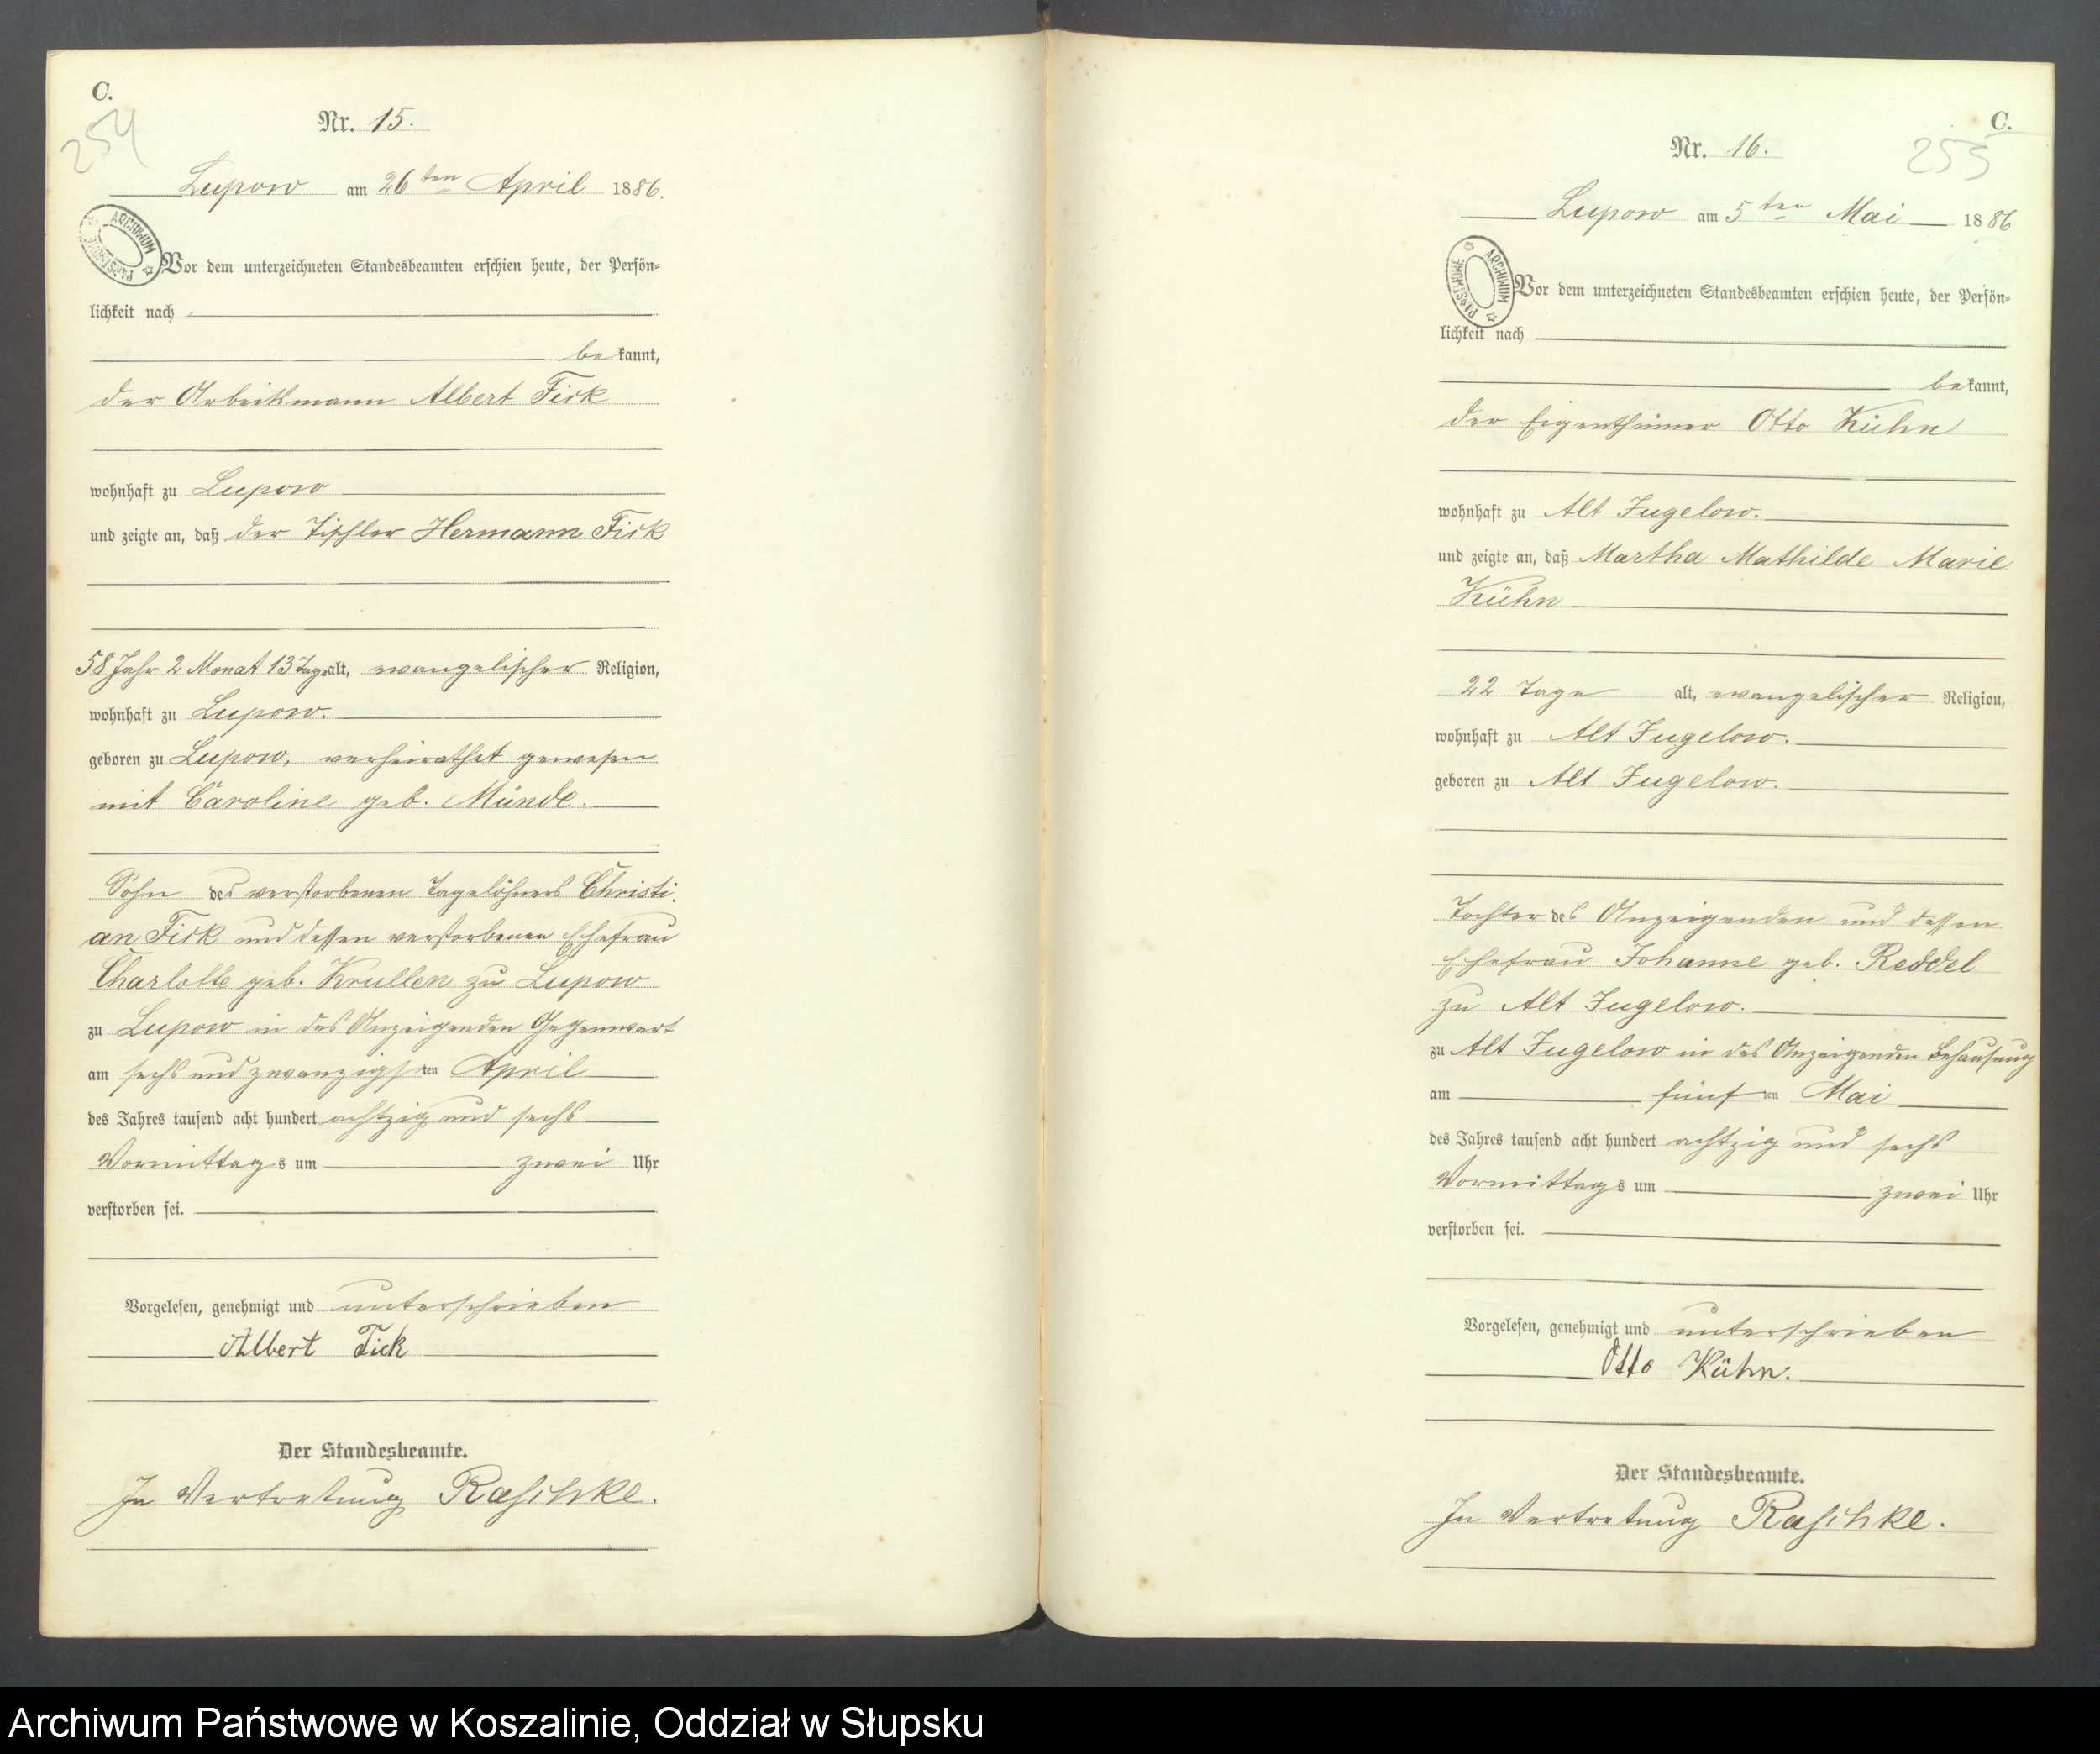 C.
254
Nr. 15.
Lupow am 26ten April 1886.
ARCHIWUM PAŃSTWOWE
Vor dem unterzeichneten Standesbeamten erschien heute, der Persön-
lichkeit nach
bekannt,
der Arbeitsmann Albert Fick
wohnhaft zu Lupow
und zeigte an, daß der Tischler Hermann Fick
58 Jahr 2 Monat 13 Tage alt, evangelischer Religion,
wohnhaft zu Lupow.
geboren zu Lupow, verheirathet gewesen
mit Caroline geb. Münde.
Sohn des verstorbenen Tagelöhners Christi-
an Fick und dessen verstorbenen Ehefrau
Charlotte geb. Krullen zu Lupow
zu Lupow in des Anzeigenden Gegenwart
am sechs und zwanzigsten April
des Jahres tausend acht hundert achtzig und sechs
Vormittags um zwei Uhr
verstorben sei.
Vorgelesen, genehmigt und unterschrieben
Albert Fick
Der Standesbeamte.
In Vertretung Raschke.
C.
255
Nr. 16.
Lupow am 5ten Mai 1886
ARCHIWUM PAŃSTWOWE
Vor dem unterzeichneten Standesbeamten erschien heute, der Persön-
lichkeit nach
bekannt,
der Eigenthümer Otto Kühn
wohnhaft zu Alt Jugelow.
und zeigte an, daß Martha Mathilde Marie
Kühn
22 Tage alt, evangelischer Religion,
wohnhaft zu Alt Jugelow.
geboren zu Alt Jugelow.
Tochter des Anzeigenden und dessen
Ehefrau Johanne geb. Reddel
zu Alt Jugelow.
zu Alt Jugelow in des Anzeigenden Behausung
am fünften Mai
des Jahres tausend acht hundert achtzig und sechs
Vormittags um zwei Uhr
verstorben sei.
Vorgelesen, genehmigt und unterschrieben
Otto Kühn.
Der Standesbeamte.
In Vertretung Raschke.
Archiwum Państwowe w Koszalinie, Oddział w Słupsku